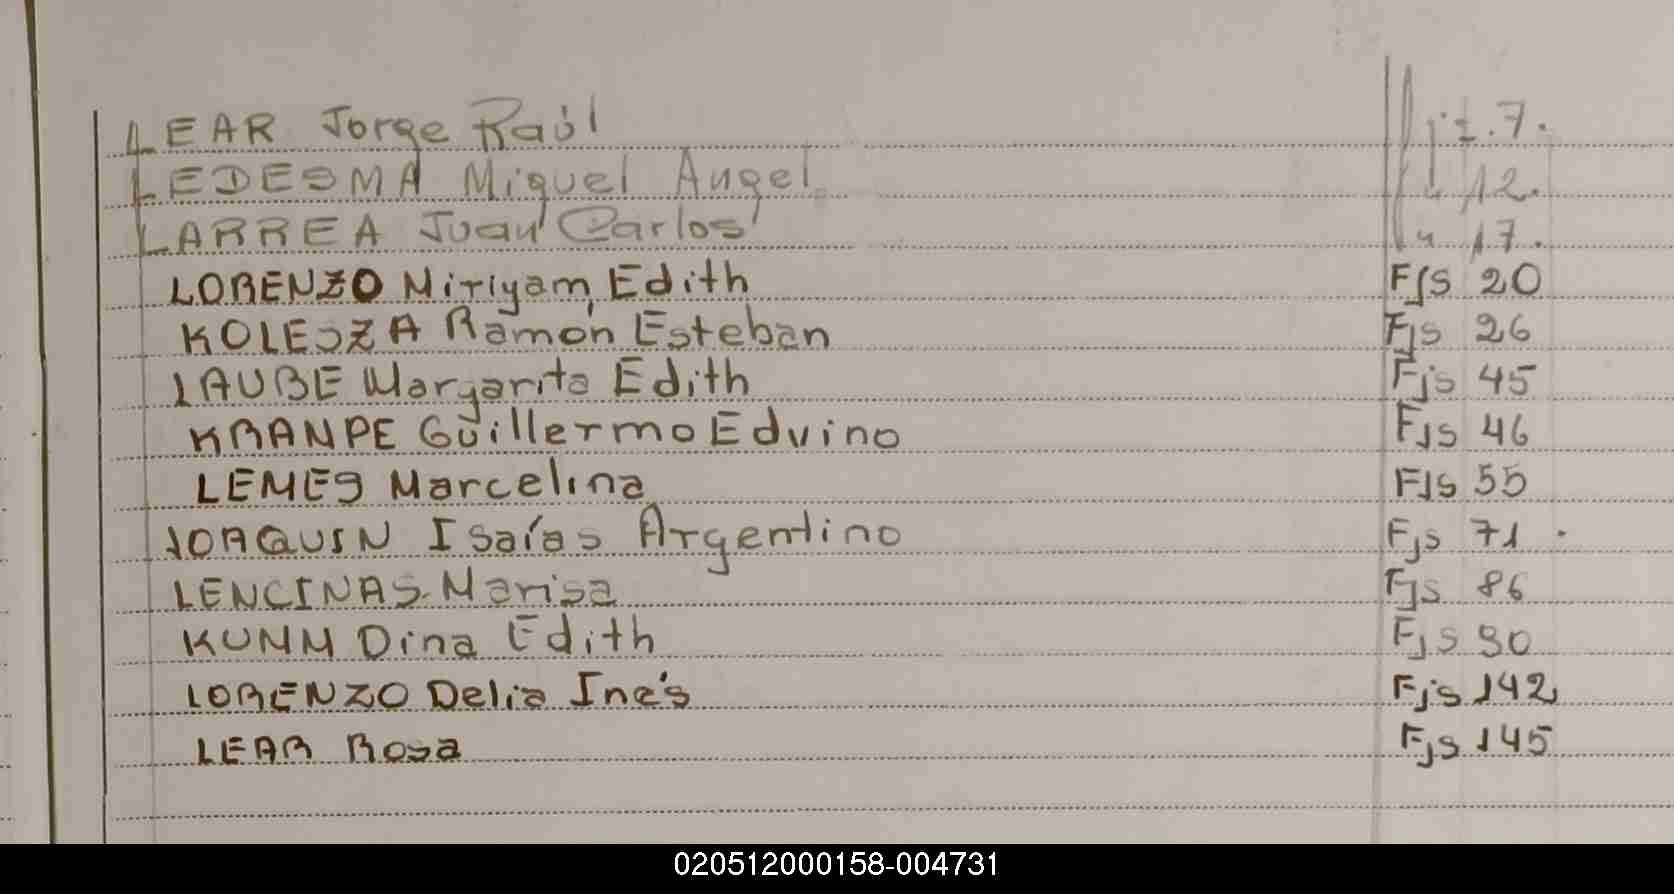 LEAR Jorge Raúl Fjz. 7.
LEDESMA Miguel Angel " 12.
LARREA Juan Carlos " 17.
LORENZO Miriyam Edith Fjs 20
KOLESZA Ramón Esteban Fjs 26
LAUBE Margarita Edith Fjs 45
KRANPE Guillermo Edvino Fjs 46
LEMES Marcelina Fjs 55
JOAQUIN Isaías Argentino Fjs 71
LENCINAS Marisa Fjs 86
KUMM Dina Edith Fjs 90
LORENZO Delia Inés Fjs 142
LEAR Rosa Fjs 145
020512000158-004731